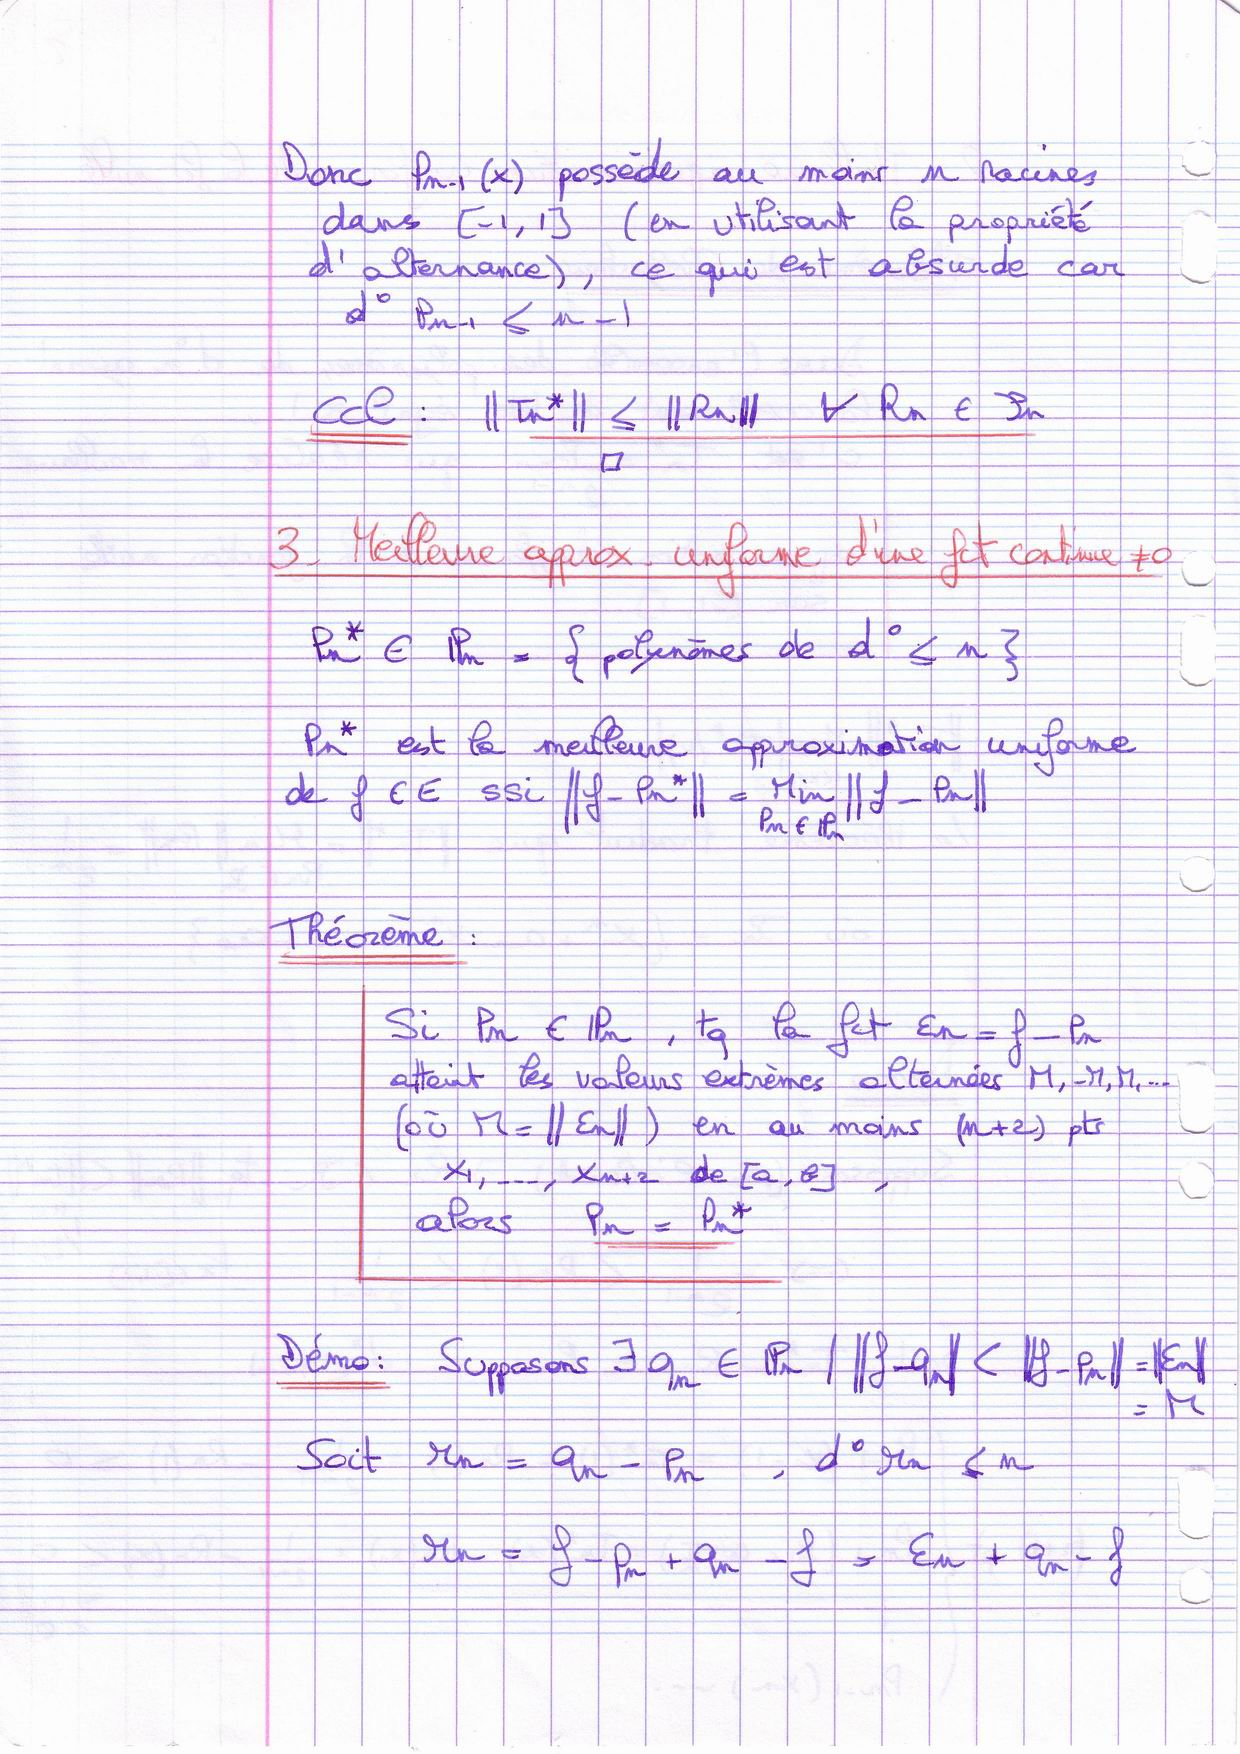 Donc Pn-1(x) possède au moins n racines
dans [-1, 1] (en utilisant la propriété
d'alternance), ce qui est absurde car
d° Pn-1 ≤ n-1
Ccl : ||Tn*|| ≤ ||Rn|| ∀ Rn ∈ Pn
□
3_ Meilleure approx. uniforme d'une fct continue ≠0
Pn* ∈ ℙn = { polynômes de d° ≤ n }
Pn* est la meilleure approximation uniforme
de f ∈ E ssi ||f - Pn*|| = Min ||f - Pn||
Pn ∈ ℙn
Théorème :
Si Pn ∈ ℙn , tq la fct εn = f - Pn
atteint les valeurs extrèmes alternées M, -M, M, ...
(où M = ||εn||) en au moins (n+2) pts
x1, ..., xn+2 de [a, b] ,
alors Pn = Pn*
Démo : Supposons ∃ qn ∈ ℙn / ||f - qn|| < ||f - Pn|| = ||εn||
= M
Soit rn = qn - Pn , d° rn ≤ n
rn = f - Pn + qn - f = εn + qn - f